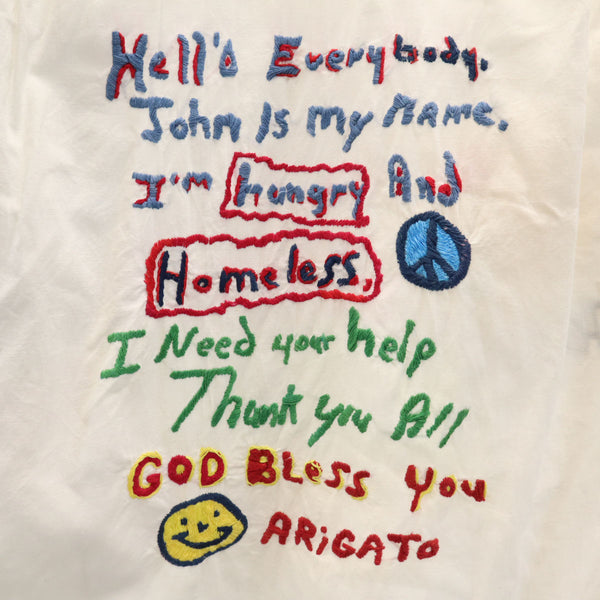 Hell'o Everybody.
John Is my NAME.
I'm hungry And
Homeless,
I Need your help
Thank you All
GOD BLess You
ARiGATO